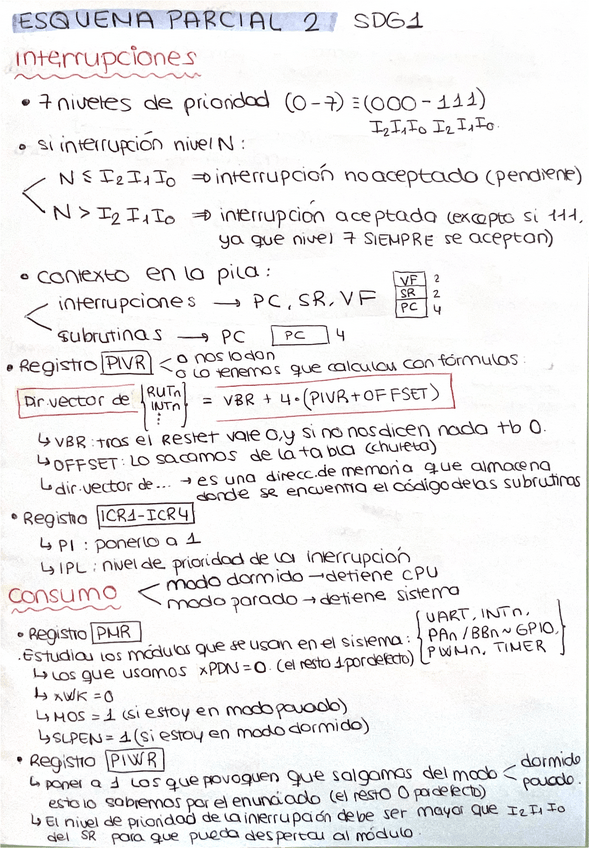 ESQUEMA PARCIAL 2 SDG1
Interrupciones
• 7 niveles de prioridad (0-7) ≡ (000-111)
I₂I₁I₀ I₂I₁I₀
• si interrupción nivel N:
N ≤ I₂I₁I₀ ⇒ interrupción no aceptado (pendiente)
N > I₂I₁I₀ ⇒ interrupción aceptada (excepto si 111,
ya que nivel 7 SIEMPRE se aceptan)
• contexto en la pila:
interrupciones → PC, SR, VF
VF 2
SR 2
PC 4
subrutinas → PC PC 4
• Registro PIVR
o nos lo dan
o lo tenemos que calcular con fórmulas:
Dir. vector de { RUTn INTn ⋮ } = VBR + 4·(PIVR+OFFSET)
↳ VBR: tras el Restet vale 0, y si no nos dicen nada tb 0.
↳ OFFSET: Lo sacamos de la tabla (chuleta)
↳ dir. vector de... → es una direcc. de memoria que almacena
donde se encuentra el código de las subrutinas
• Registro ICR1-ICR4
↳ PI: ponerlo a 1
↳ IPL: nivel de prioridad de la interrupción
Consumo
modo dormido → detiene CPU
modo parado → detiene sistema
• Registro PMR
. Estudiar los módulos que se usan en el sistema: { UART, INTn,
PAn/BBn ~ GPIO,
PWMn, TIMER }
↳ Los que usamos xPDN=0. (el resto 1 por defecto)
↳ xWK=0
↳ MOS=1 (si estoy en modo parado)
↳ SLPEN=1 (si estoy en modo dormido)
• Registro PIWR
↳ poner a 1 Los que provoquen que salgamos del modo < dormido
parado.
esto lo sabremos por el enunciado (el resto 0 por defecto)
↳ El nivel de prioridad de la interrupción debe ser mayor que I₂I₁I₀
del SR para que pueda despertar al módulo.